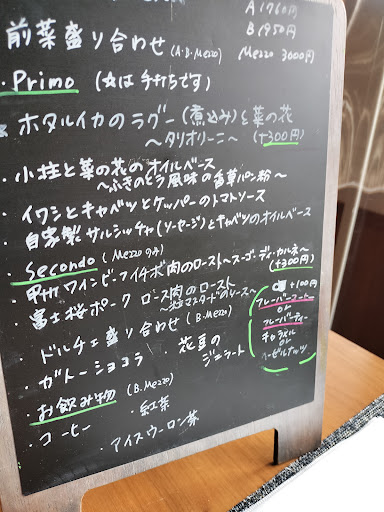 A 1760円
B 1950円
前菜盛り合わせ (A.B.Mezzo) Mezzo 3000円
・Primo (☆は手打ちです)
☆ホタルイカのラグー(煮込み)と菜の花
〜タリオリーニ〜 (+300円)
・小柱と菜の花のオイルベース
〜ふきのとう風味の香草パン粉〜
・イワシとキャベツとケッパーのトマトソース
・自家製サルシッチャ(ソーセージ)とキャベツのオイルベース
・Secondo (Mezzoのみ)
甲州ワインビーフイチボ肉のロースト〜スーゴ・ディ・カルネ〜
(+300円)
富士桜ポーク ロース肉のロースト
〜粒マスタードソース〜
ドルチェ盛り合わせ (B.Mezzo)
・ガトーショコラ
・花豆のジェラート
・お飲み物 (B.Mezzo)
・コーヒー
・紅茶
・アイスウーロン茶
+100円
フレーバーコーヒー
or
フレーバーティ
キャラメル
or
ヘーゼルナッツ